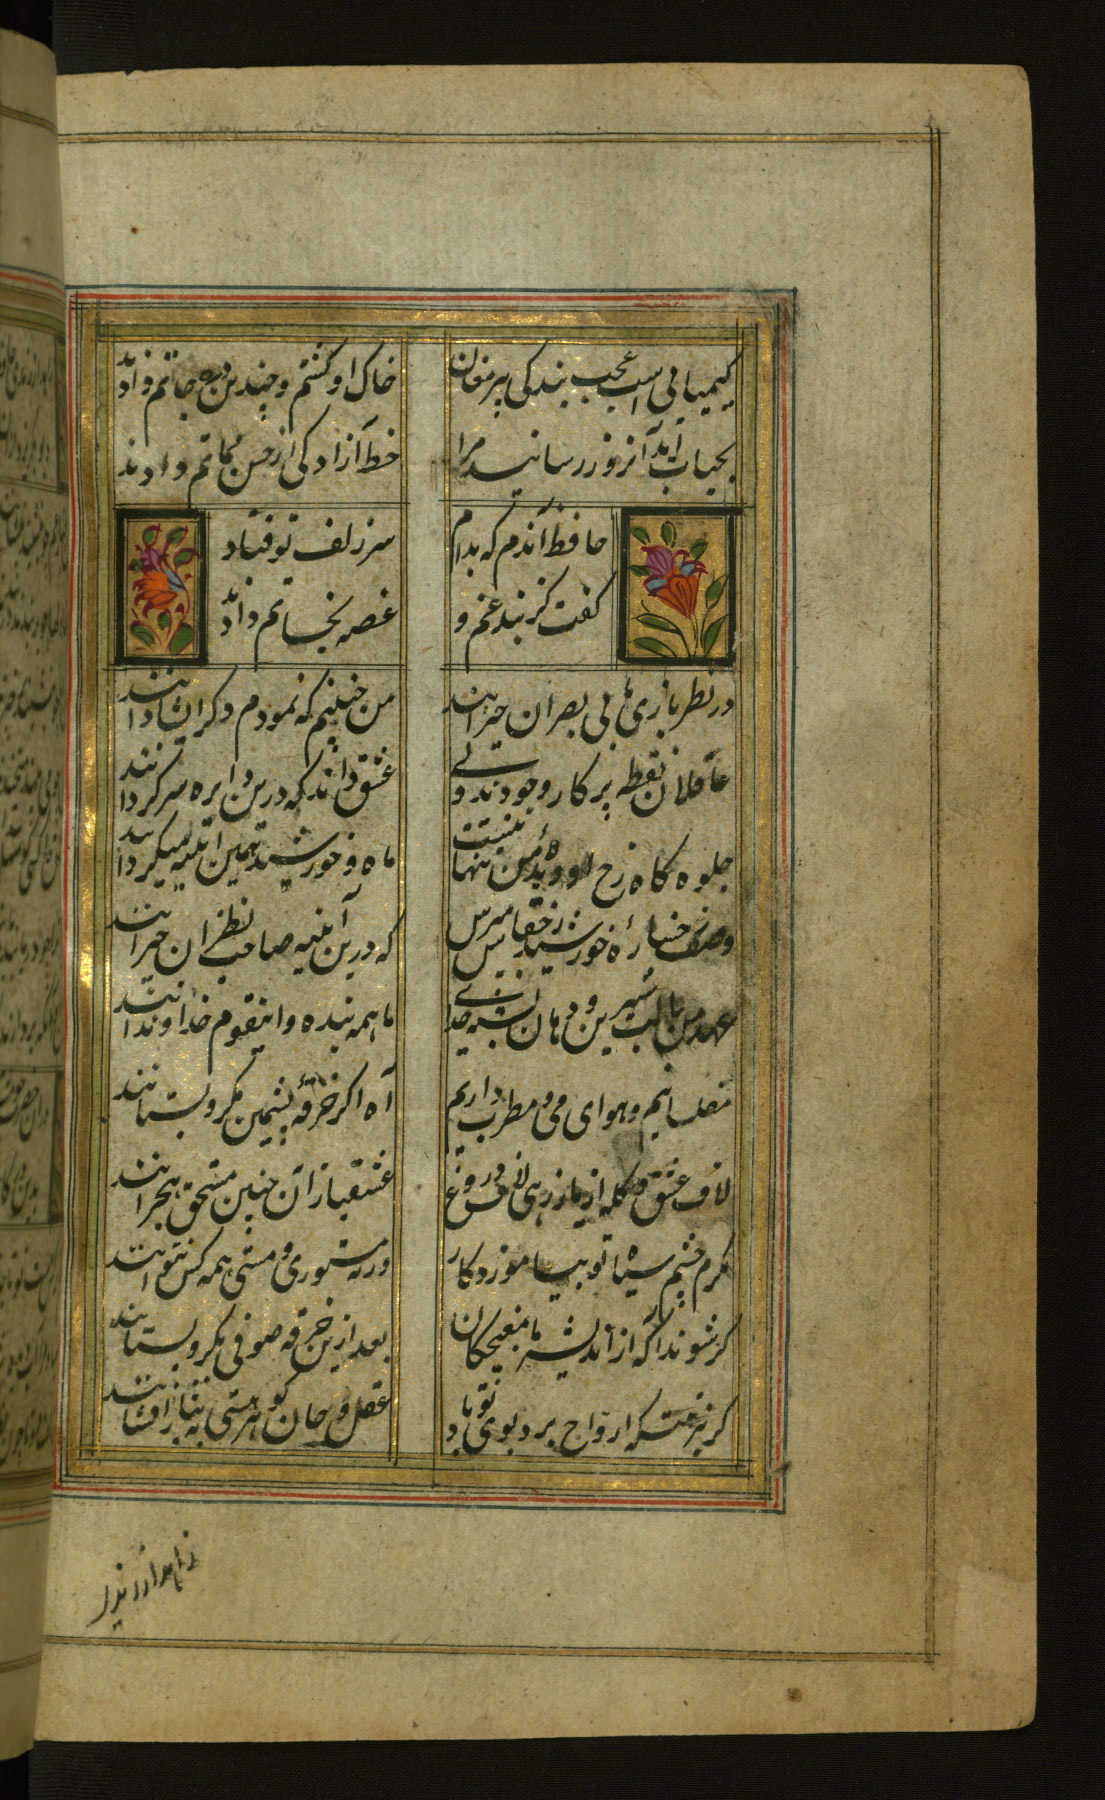 کیمیائی است عجب بندگی پیر مغان
خاک او گشتم و چندین درجاتم دادند
بحیات ابد آنروز رسانید مرا
خط آزادگی از حسن مماتم دادند
حافظ آندم که بدام
سر زلف تو فتاد
گفت کز بند غم و
غصه نجاتم دادند
در نظر بازی ما بی بصران حیرانند
من چنینم که نمودم دگر ایشان دانند
عاقلان نقطه پرکار وجودند ولی
عشق داند که درین دایره سرگردانند
جلوه گاه رخ او دیدهٔ من تنها نیست
ماه و خورشید همین آینه میگردانند
وصف رخسارهٔ خورشید ز خفاش مپرس
که درین آینه صاحب نظران حیرانند
عهد من با لب شیرین دهنان بست خدای
ما همه بنده و اینقوم خداوندانند
مفلسانیم و هوای می و مطرب داریم
آه اگر خرقهٔ پشمین بگرو نستانند
لاف عشق و گله از یار زهی لاف دروغ
عشقبازان چنین مستحق هجرانند
مگرم چشم سیاه تو بیاموزد کار
ورنه مستوری و مستی همه کس نتوانند
گر شوند آگه از اندیشه ما مغبچگان
بعد ازین خرقه صوفی بگرو نستانند
گر بنزهتگه ارواح برد بوی تو باد
عقل و جان گوهر هستی به نثار افشانند
زاهد ار رندی